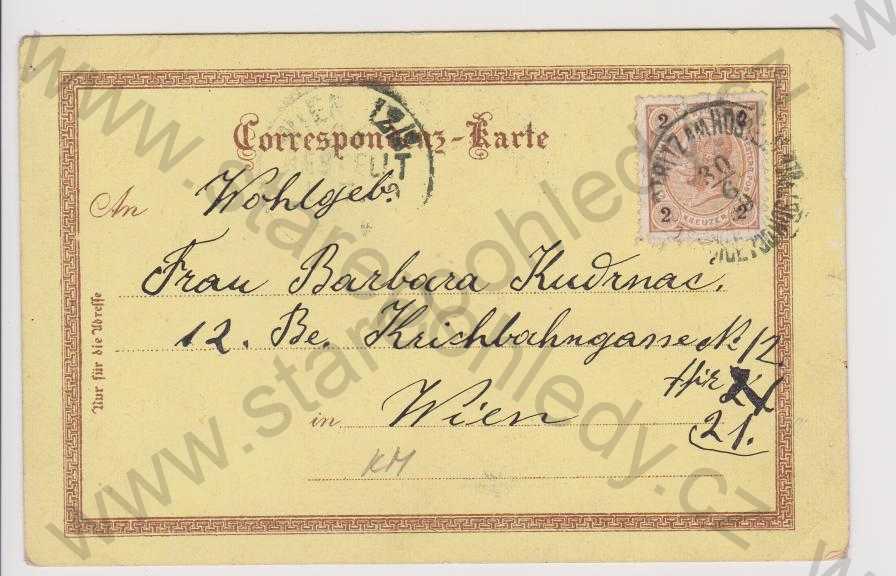 Correspondenz-Karte
An Wohlgeb.
Frau Barbara Kudrnac,
12. Be. Krichbahngasse No 12
thür
21.
in Wien
Nur für die Adresse
KM
2 2
2 2
KREUZER
30
www.stare-pohledy.cz